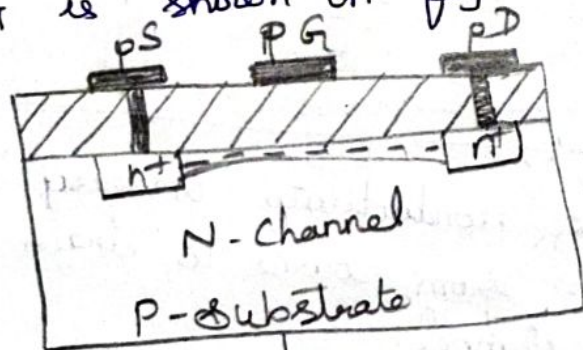 is shown in fig
pS PG pD
n+ n+
N-Channel
P-Substrate